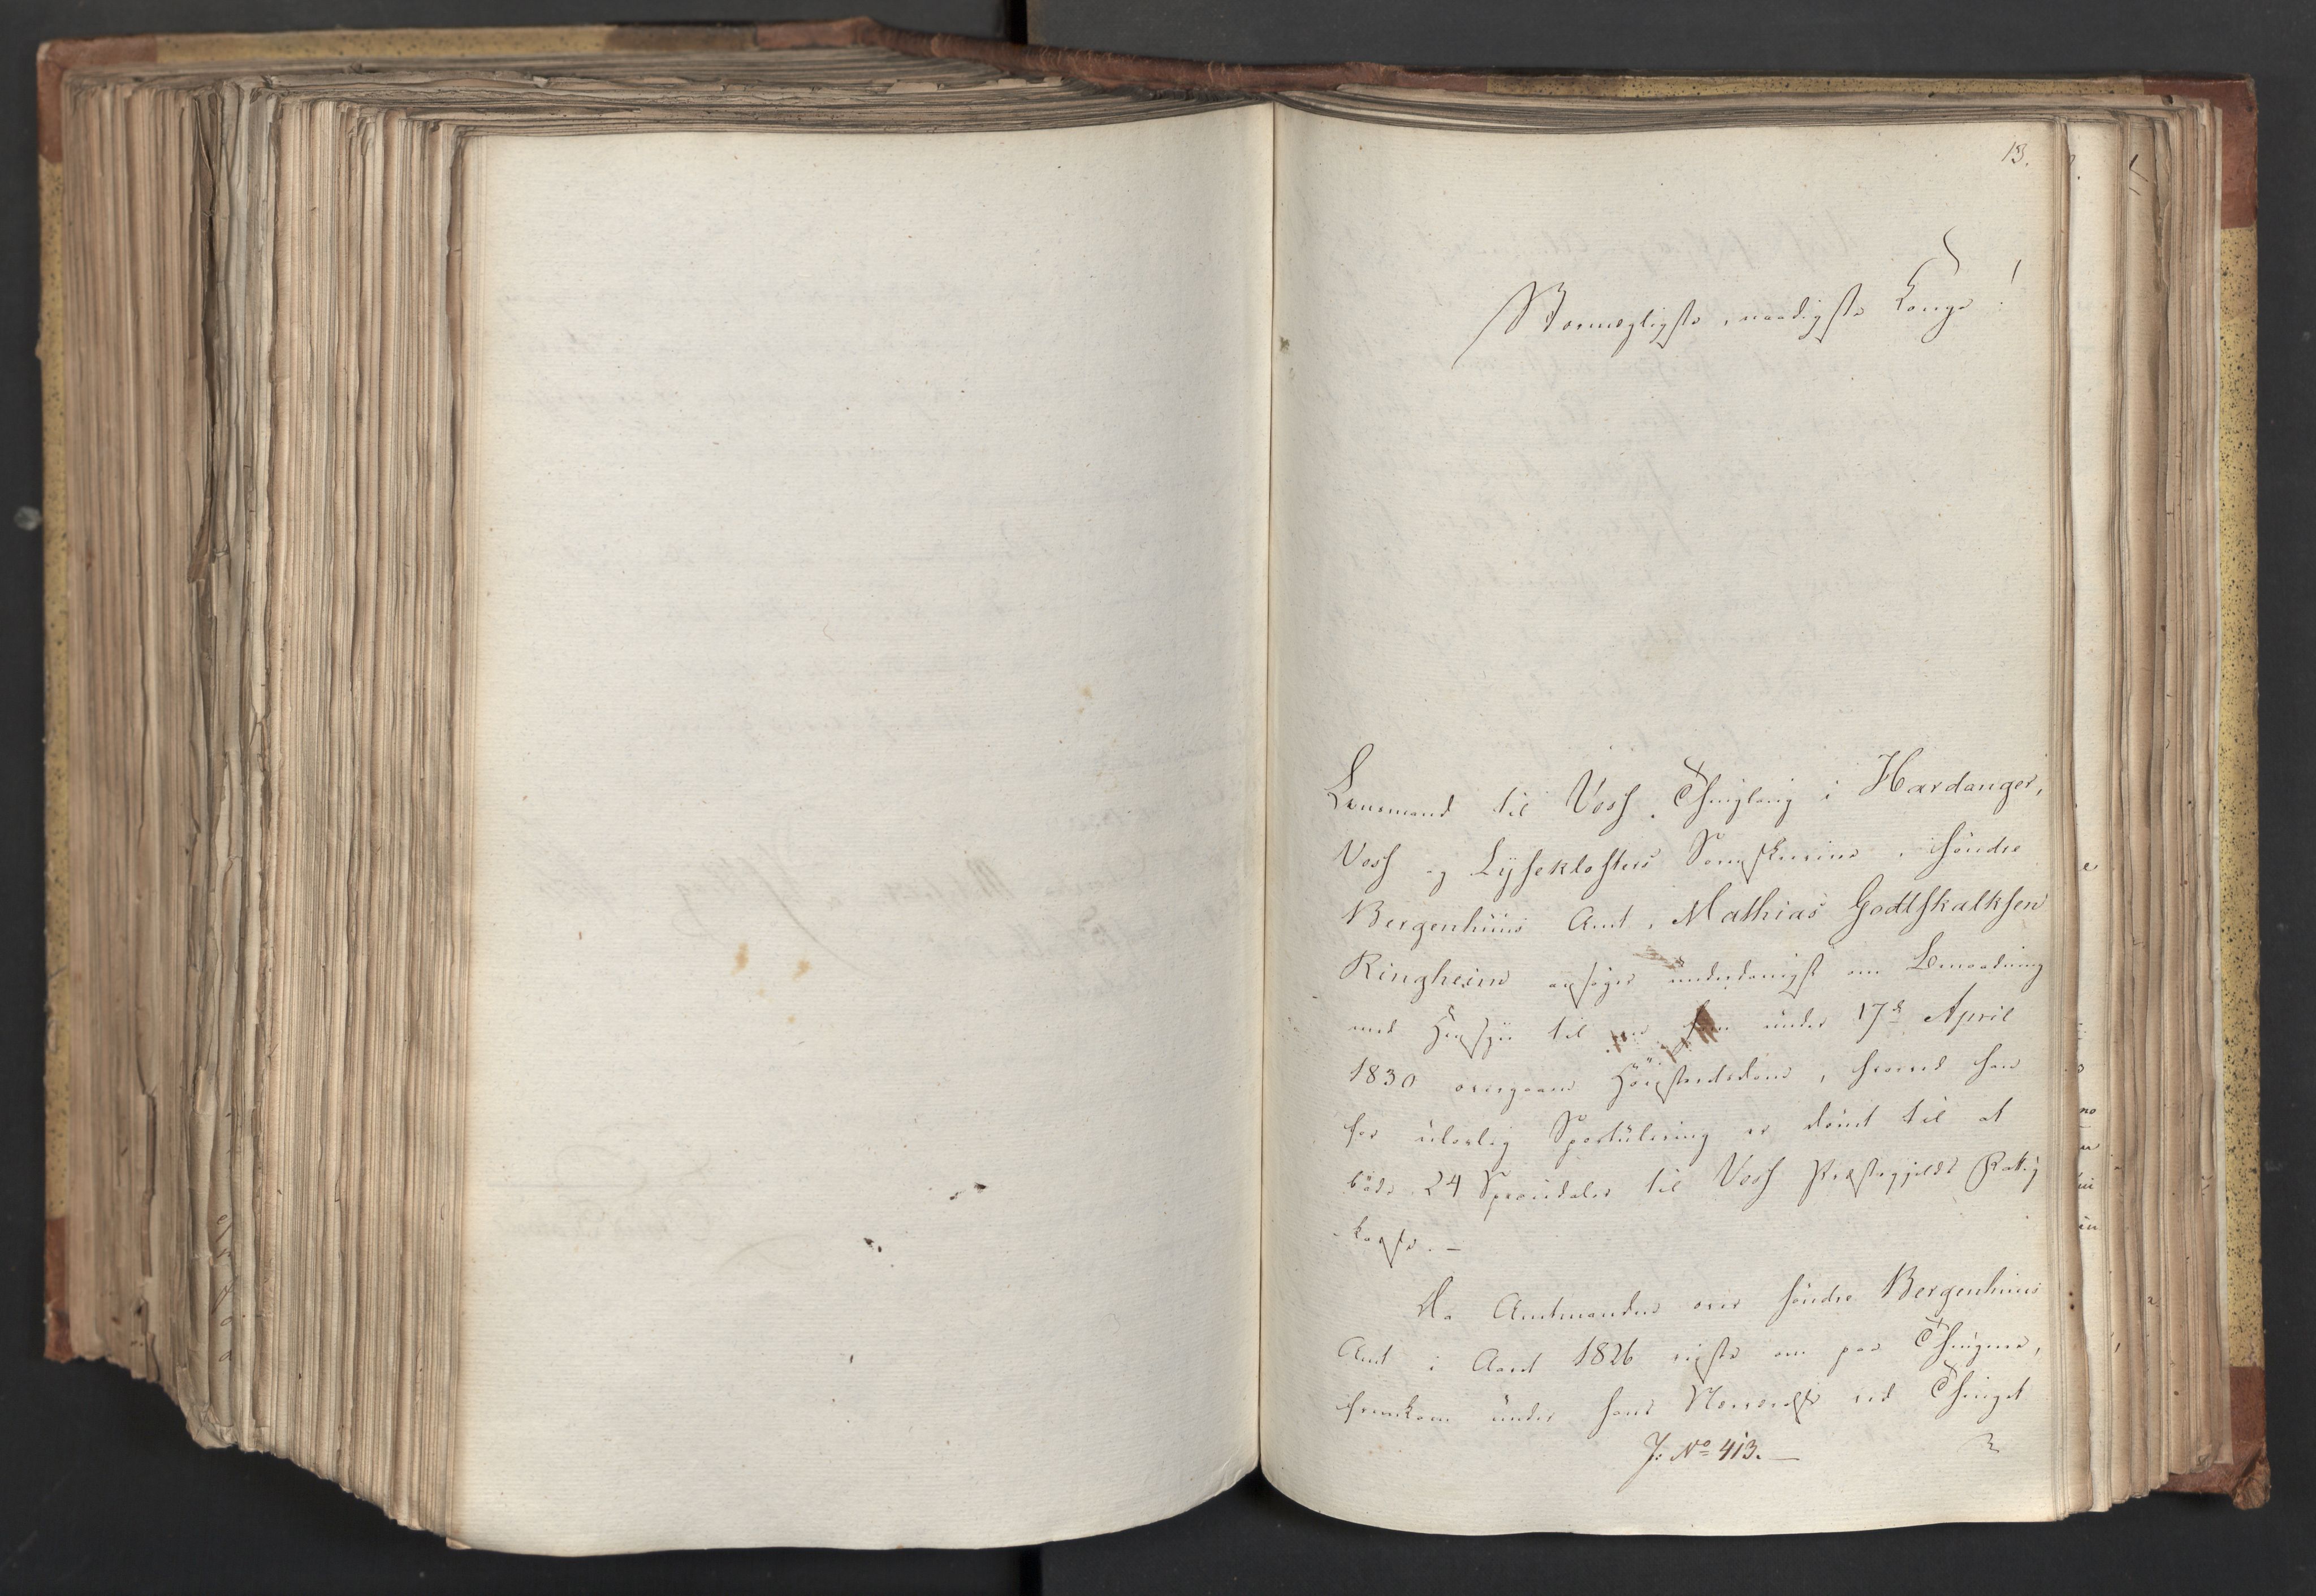 13.
Stormægtigste, naadigste Konge!
Lensmand til Voss Thinglaug i Hardanger,
Voss og Lysekloster Sorenskriverie, Søndre
Bergenhuus Amt, Mathias Godtskalksen
Ringheim ansøger underdanigst om Benaadning
med Hensyn til en ham under 17de April
1830 overgaaen Høiesteretsdom, hvorved han
for ulovlig Sportulering er dømt til at
bøde 24 Speciedaler til Voss Præstegjelds Fattig-
kasse. –
Da Amtmanden over Søndre Bergenhuus
Amt i Aaret 1826 reiste om paa Thingene,
fremkom under hans Nærværelse ved Thinget
J: No 413. –